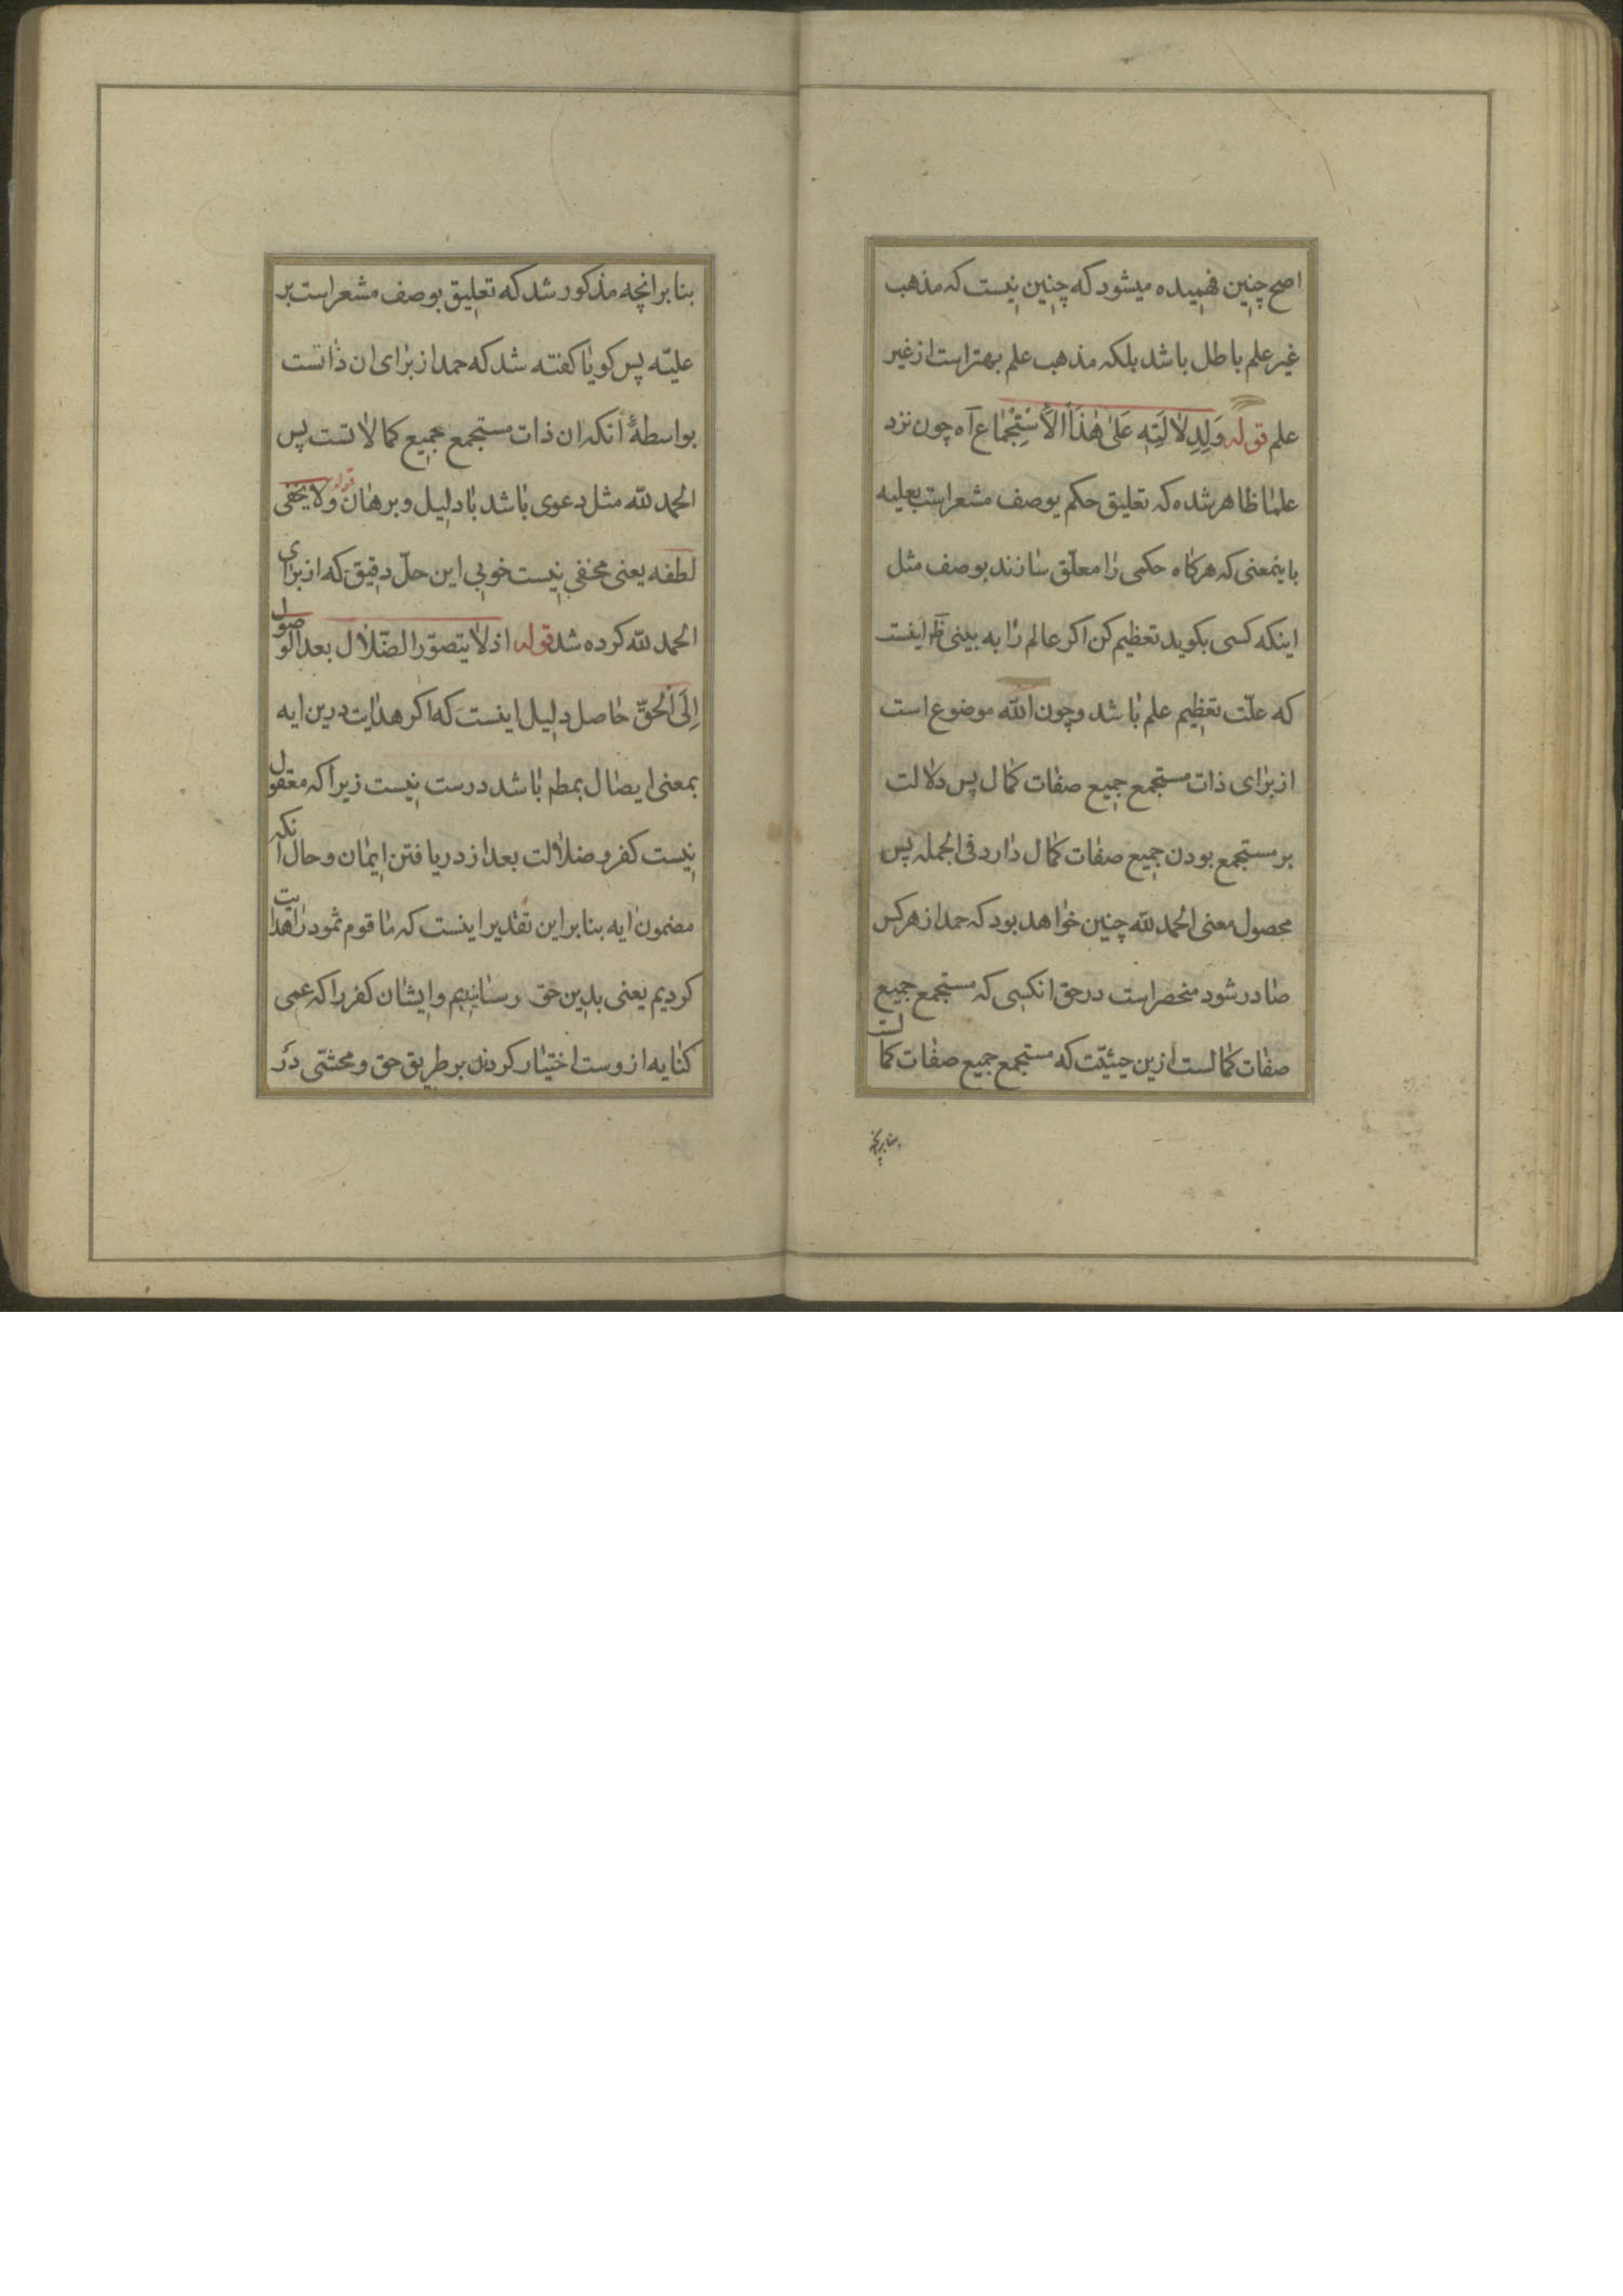 اصح چنین فهمیده میشود که چنین نیست که مذهب
غیر علم باطل باشد بلکه مذهب علم بهتر است از غیر
علم قوله وَلِدِلالَتِهِ عَلیٰ هٰذَا الاَسْتِجْمٰاع آه چون نزد
علما ظاهر شده که تعلیق حکم بوصف مشعر است بعلیه
باینمعنی که هرکاه حکمی را معلّق سازند بوصف مثل
اینکه کسی بکوید تعظیم کن اکر عالم را به بینی ظ اینست
که علّت تعظیم علم باشد و چون الله موضوع است
از برای ذات مستجمع جمیع صفات کمال پس دلالت
بر مستجمع بودن جمیع صفات کمال دارد فی الجمله پس
محصول معنی الحمد لله چنین خواهد بود که حمد از هرکس
صادر شود منحصر است در حق انکسی که مستجمع جمیع
صفات کمالست ازین حیثیّت که مستجمع جمیع صفات کمالست
بنابر انچه مذکور شد که تعلیق بوصف مشعر است بر
علیّه پس کویا کفته شد که حمد از برای ان ذاتست
بواسطهٔ انکه ان ذات مستجمع جمیع کمالاتست پس
الحمد لله مثل دعوی باشد با دلیل و برهان قوله ولا یخفی
لطفه یعنی مخفی نیست خوبی این حلّ دقیق که از برای
الحمد لله کرده شد قوله اذ لا یتصوّر الضّلال بعد الوصول
اِلَی الْحَقِّ حاصل دلیل اینست که اکر هدایت درین ایه
بمعنی ایصال بمطم باشد درست نیست زیرا که معقول
نیست کفر و ضلالت بعد از دریافتن ایمان و حال انکه
مضمون ایه بنابر این تقدیر اینست که ما قوم ثمود را هدایت
کردیم یعنی بدین حق رسانیدیم و ایشان کفر را که عمی
کنایه ازوست اختیار کردند بر طریق حق و محشّی در